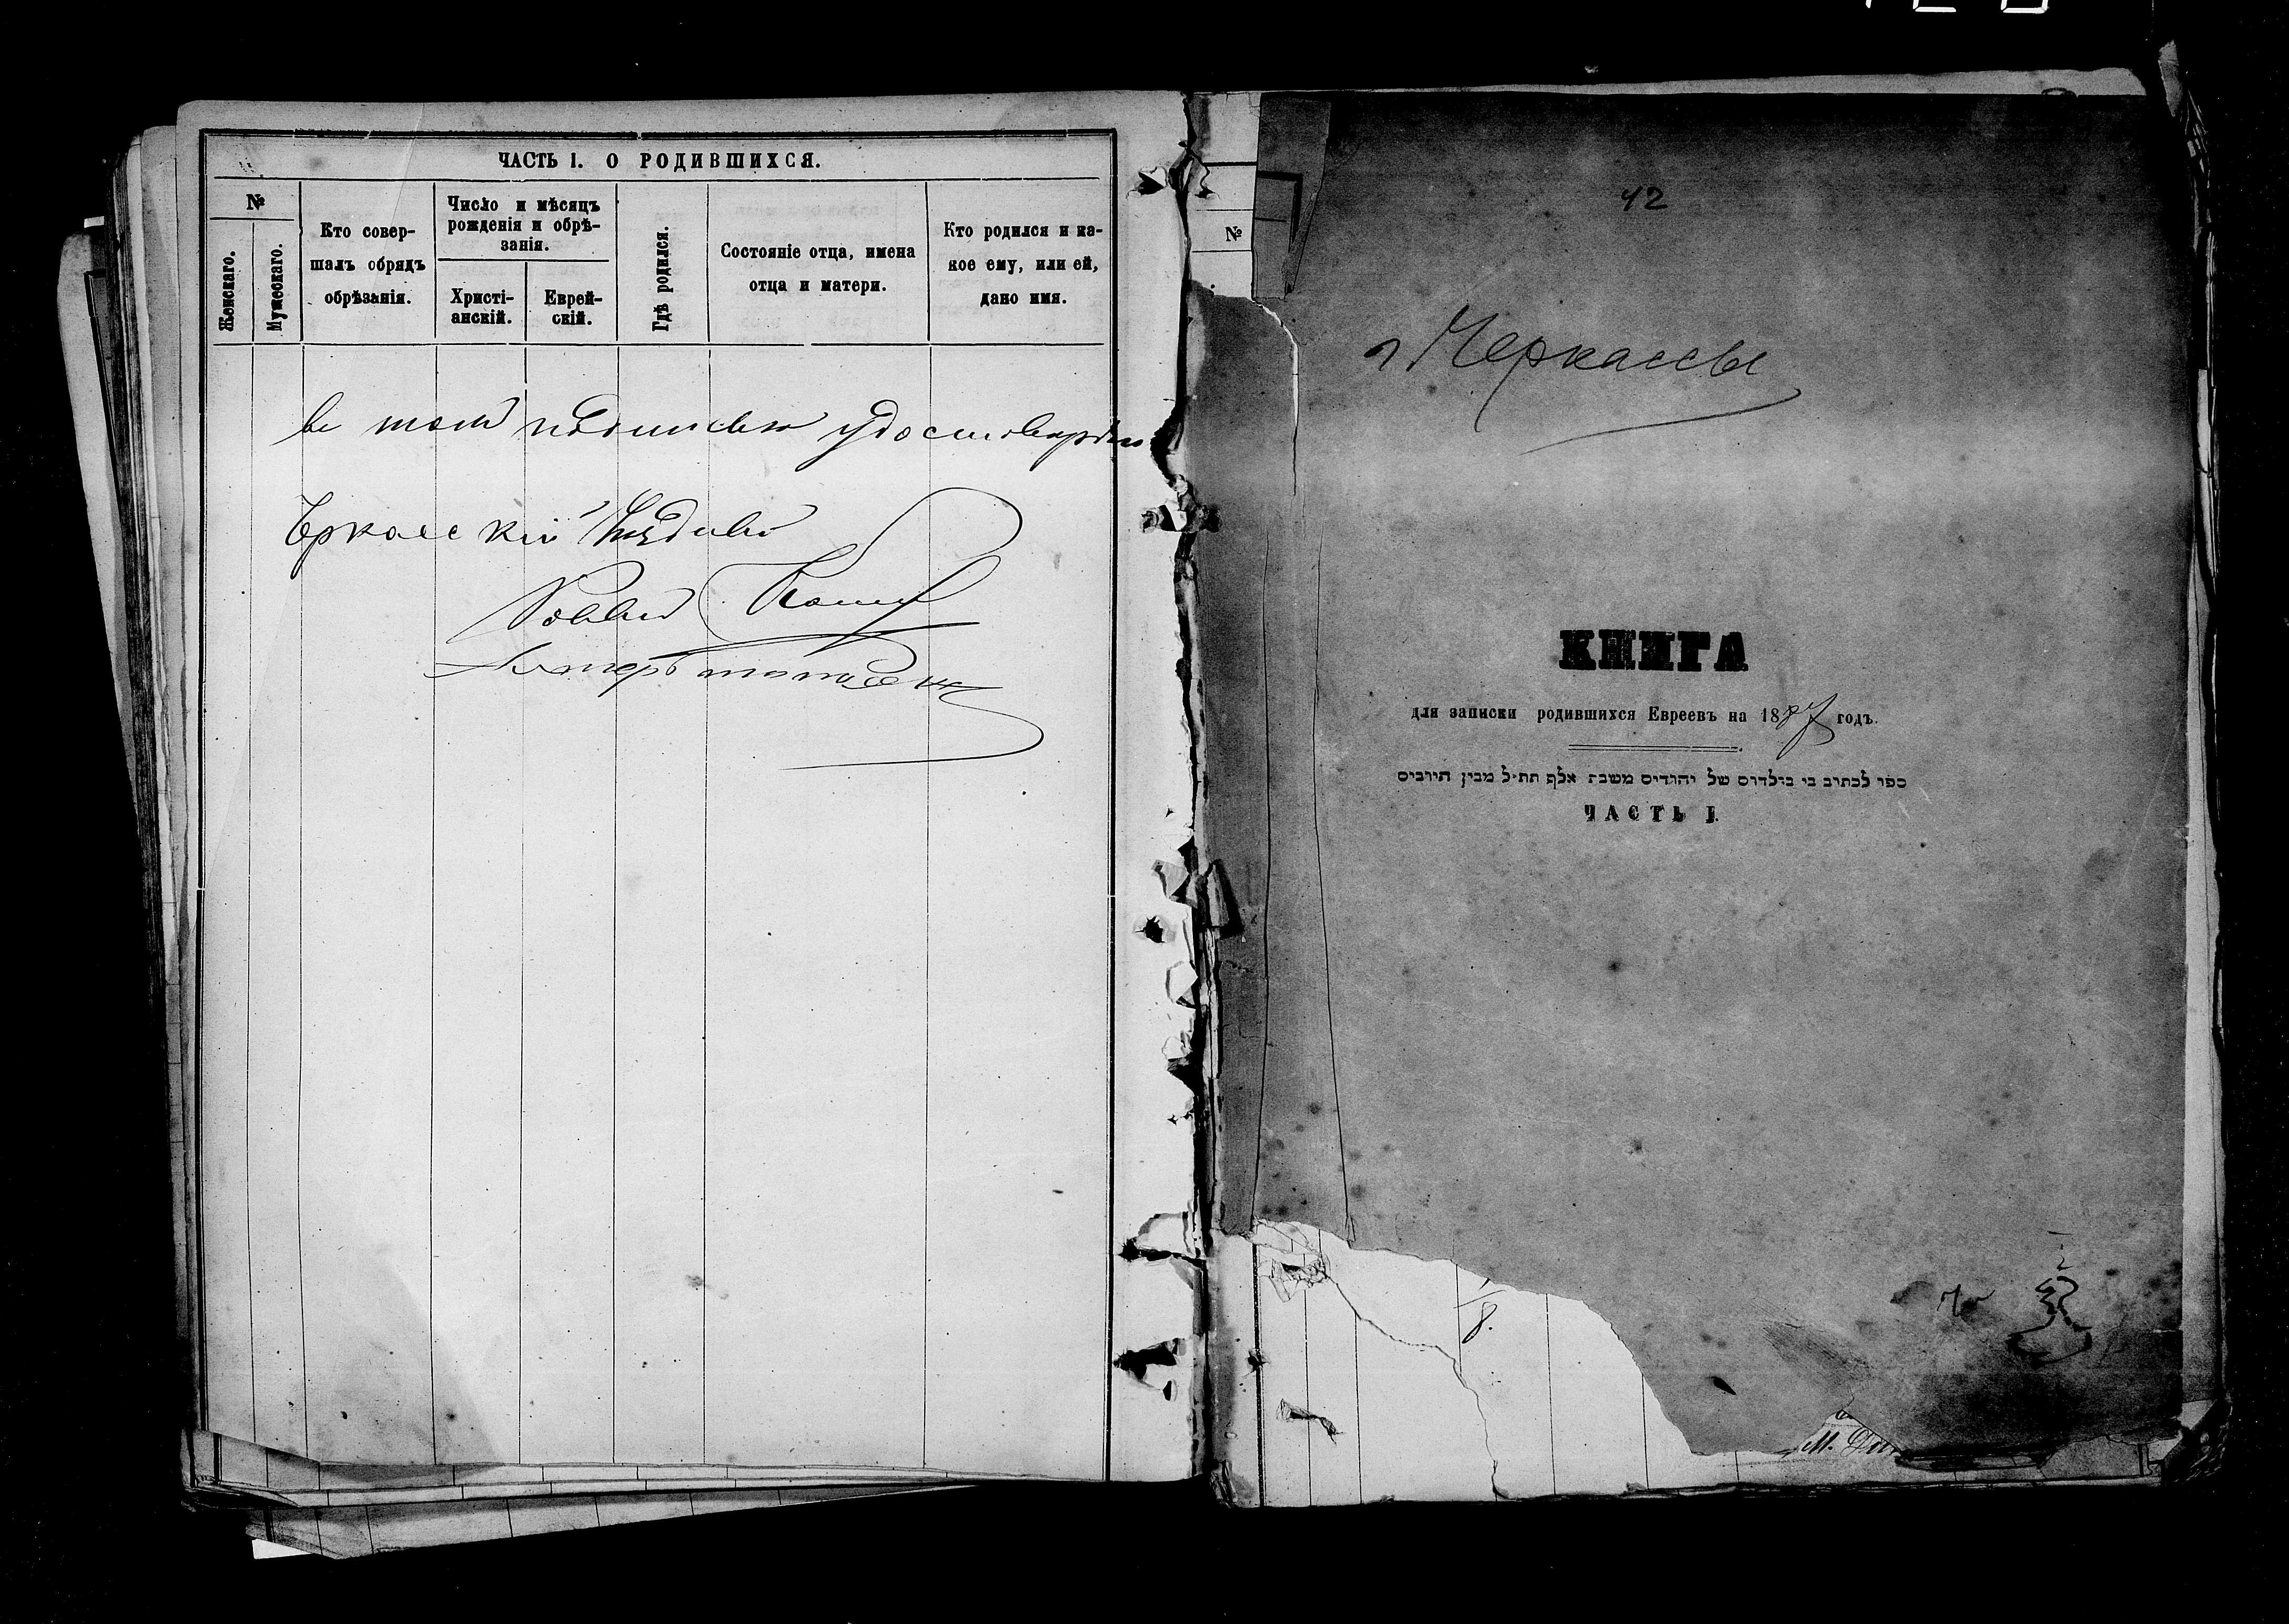 ЧАСТЬ I. О РОДИВШИХСЯ.
№
Женскаго.
Мужескаго.
Кто совер-
шалъ обрядъ
обрѣзанія.
Число и мѣсяцъ
рожденія и обрѣ-
занія.
Христі-
анскій.
Еврей-
скій.
Гдѣ родился.
Состояніе отца, имена
отца и матери.
Кто родился и ка-
кое ему, или ей,
дано имя.
въ томъ подписью удостовѣряю
Черкасскій
Раввинъ
№
42
г Черкассы
КНИГА
для записки родившихся Евреевъ на 1887 годъ.
ספר לכתוב בו בולדים של יהודים משנת אלף תת״ל מבין חיובים
ЧАСТЬ I.
8.